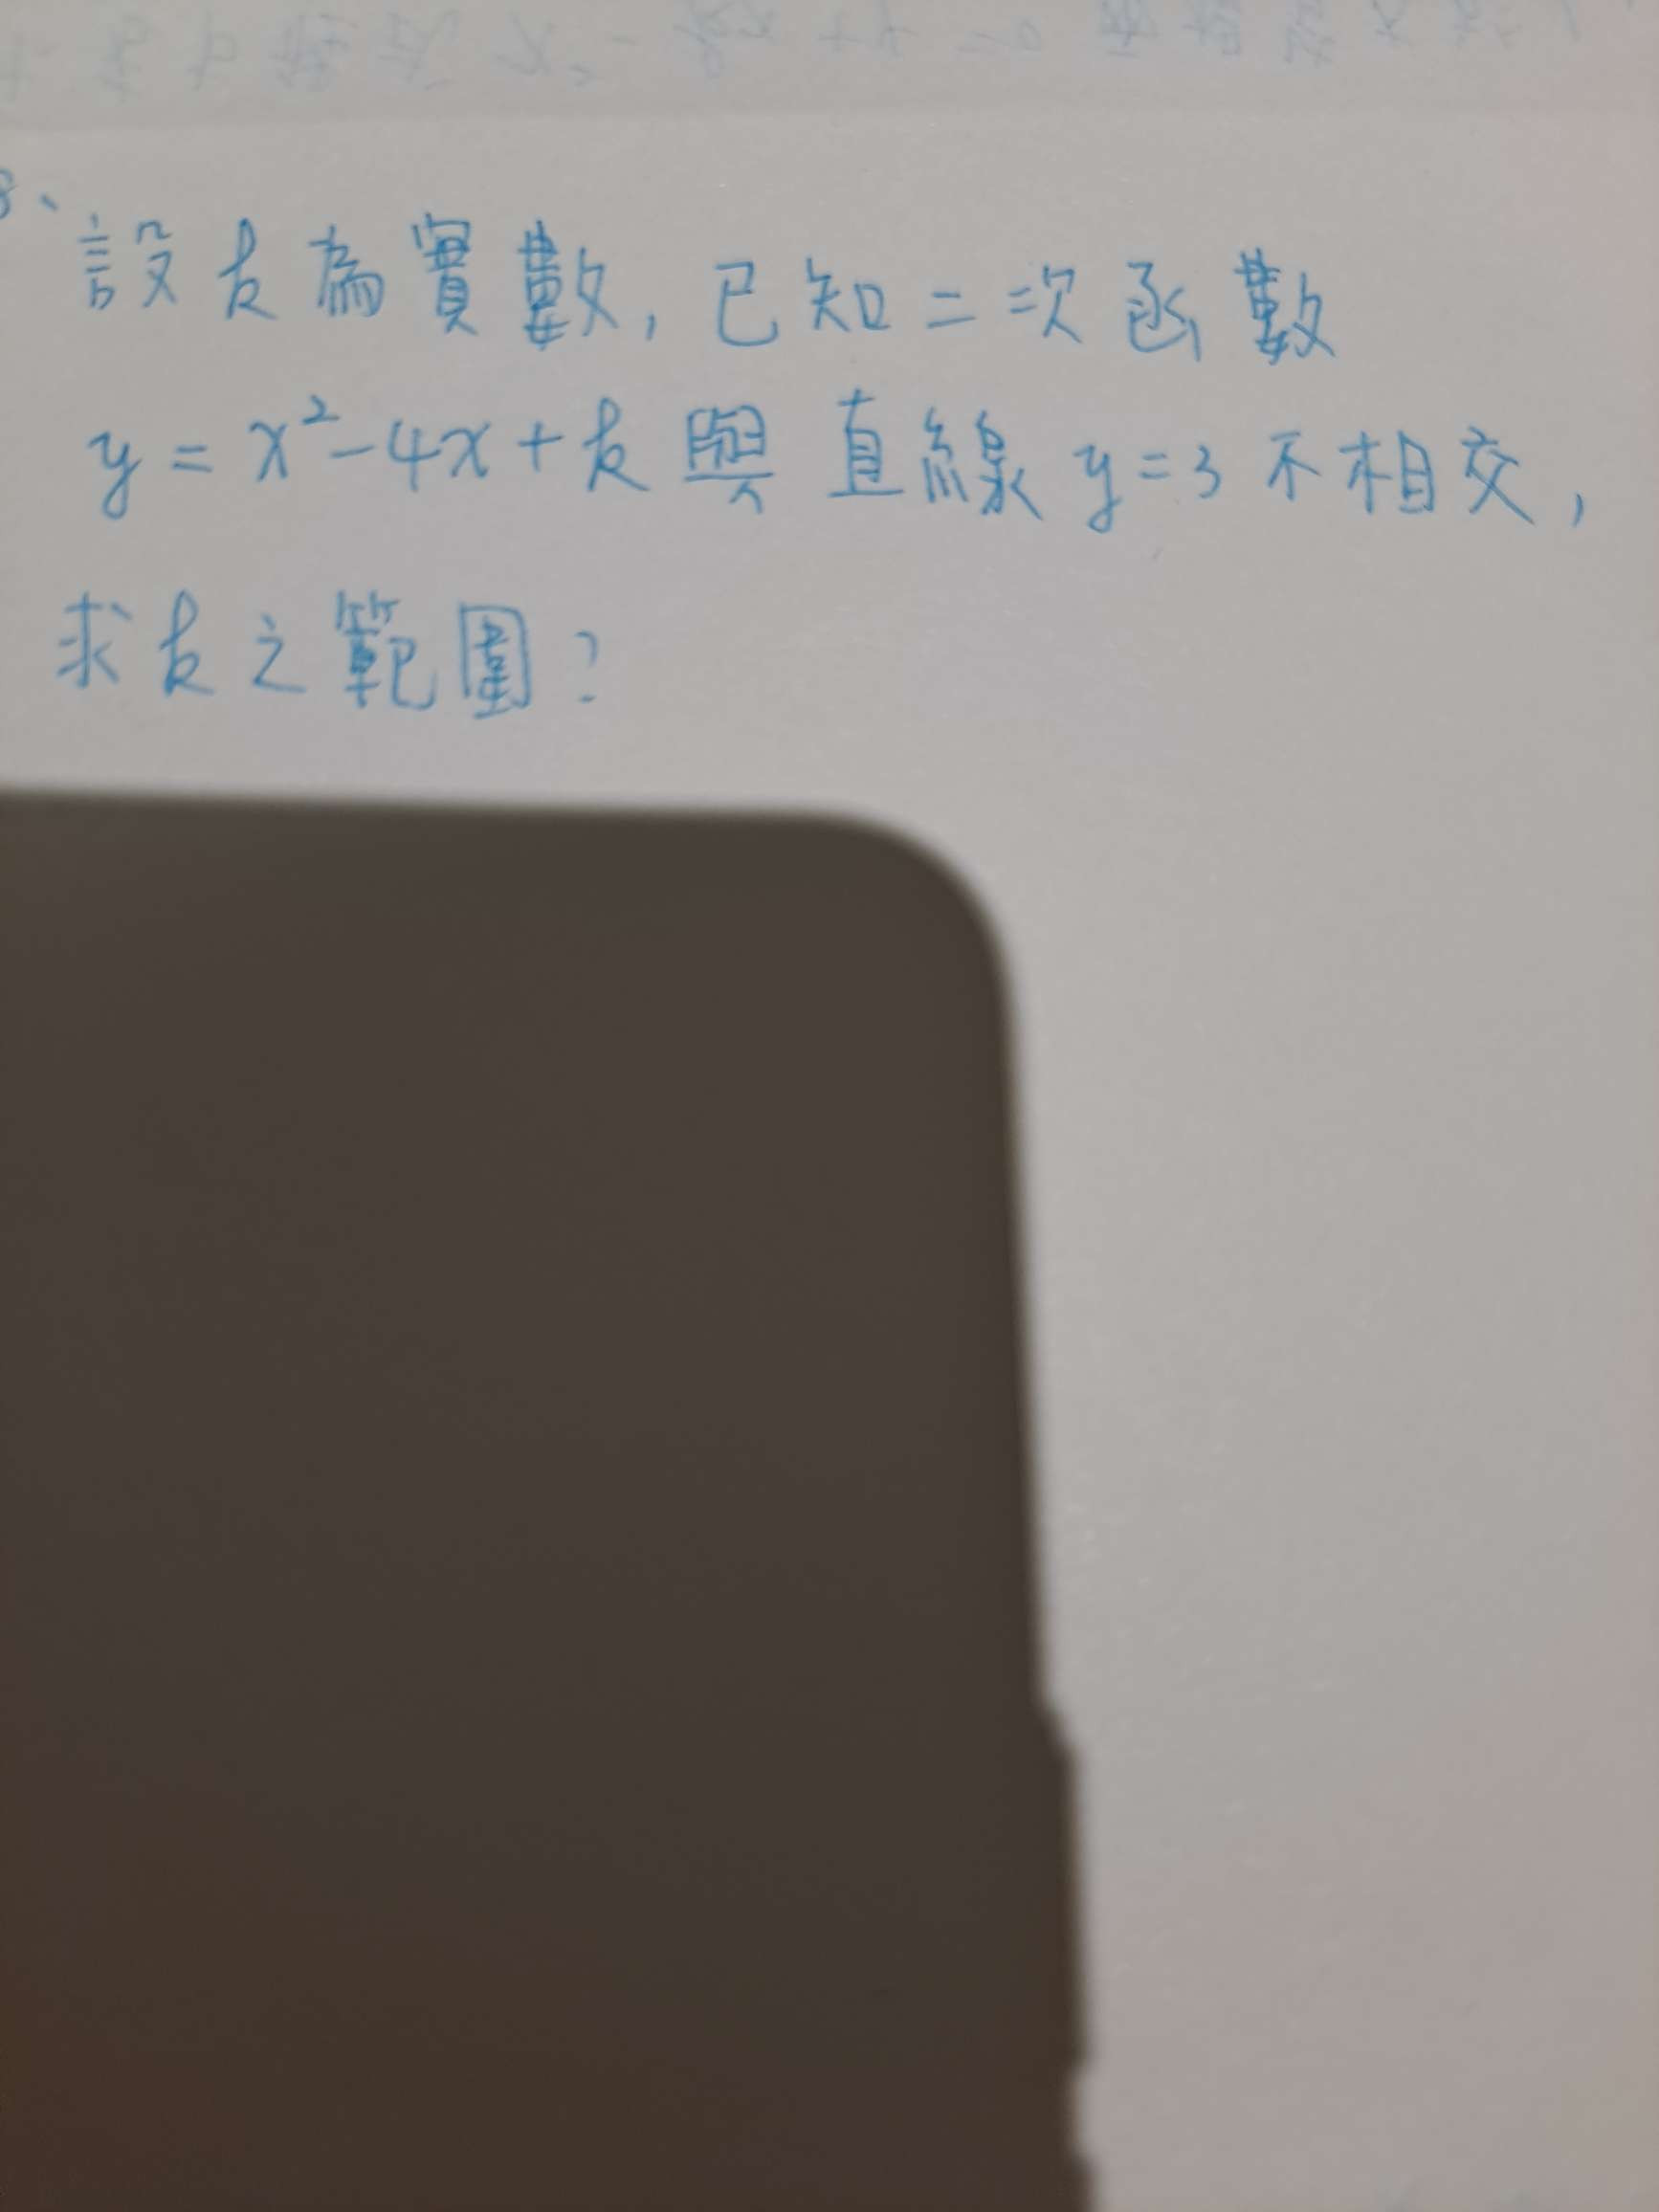 設k為實數,已知二次函數
y=x²-4x+k與直線y=3不相交,
求k之範圍?